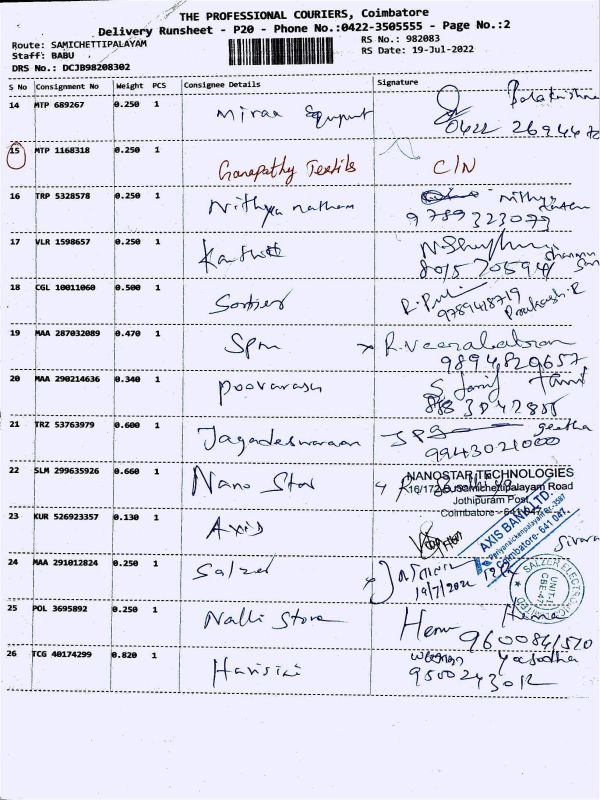 THE PROFESSIONAL COURIERS, Coimbatore
Delivery Runsheet - P20 - Phone No.:0422-3505555 - Page No.:2
Route: SAMICHETTIPALAYAM
Staff: BABU
DRS No.: DCJB98208302
RS No.: 982083
RS Date: 19-Jul-2022
S No Consignment No Weight PCS Consignee Details Signature
14 MTP 689267 0.250 1 Miraa Balakrishna
0422 2694470
15 MTP 1168318 0.250 1 Ganapathy Textils C/N
16 TRP 5328578 0.250 1 Nithya
9789323079
17 VLR 1598657 0.250 1 Karthik
18 CGL 10011060 0.500 1 Prakash.R
9789418719
19 MAA 287032089 0.470 1 Spm R.Veerabatran
9894829657
20 MAA 290214636 0.340 1 Poovarasu
21 TRZ 53763979 0.600 1 Jagadeswaraan geetha
9943021000
22 SLM 299635926 0.660 1 Nano Star
NANOSTAR TECHNOLOGIES
Samichettipalayam Road
Jothipuram Post,
Coimbatore - 641 047.
23 KUR 526923357 0.130 1 Axis
AXIS BANK LTD
Coimbatore- 641 047.
24 MAA 291012824 0.250 1 Salzer
19/7/2022
SALZER ELECTRONICS LIMITED
UNIT-I
CBE-47
25 POL 3695892 0.250 1 Nalli Store Hema
9600841510
26 TCG 40174299 0.820 1 Harisini Yasodha
9500243012